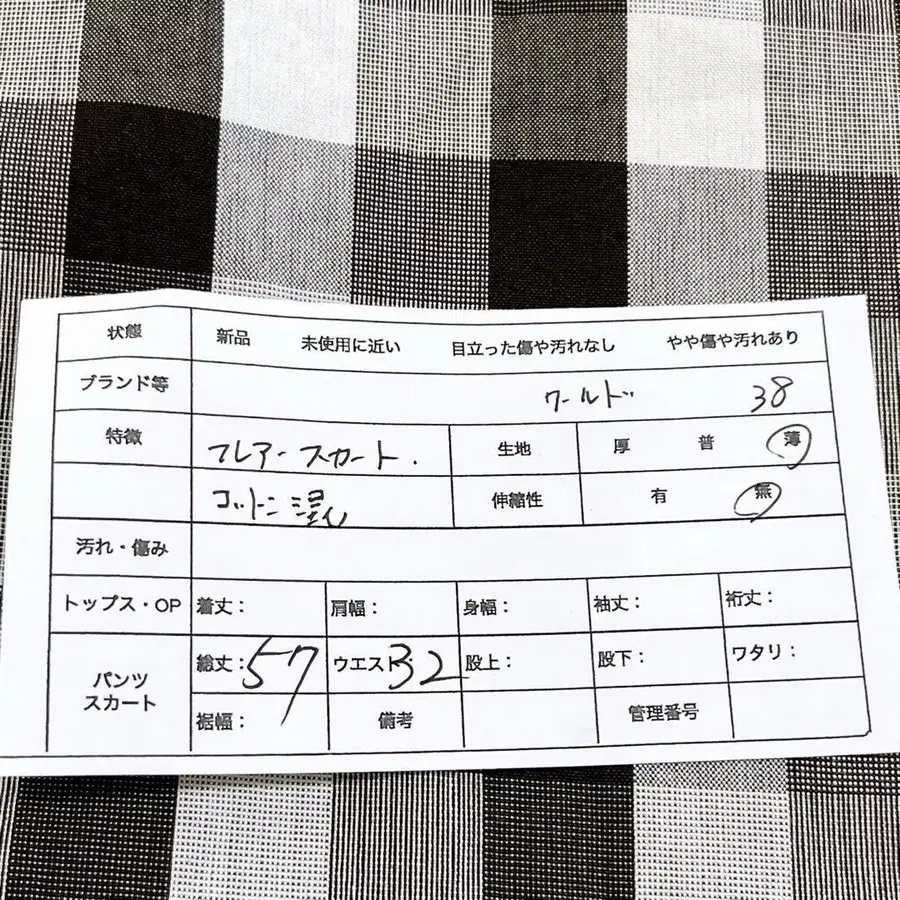 状態 新品 未使用に近い 目立った傷や汚れなし やや傷や汚れあり
ブランド等 ワールド 38
特徴 フレアースカート. 生地 厚 普 薄
コットン混 伸縮性 有 無
汚れ・傷み
トップス・OP 着丈: 肩幅: 身幅: 袖丈: 裄丈:
パンツ スカート 総丈:57 ウエスト32 股上: 股下: ワタリ:
裾幅: 備考 管理番号